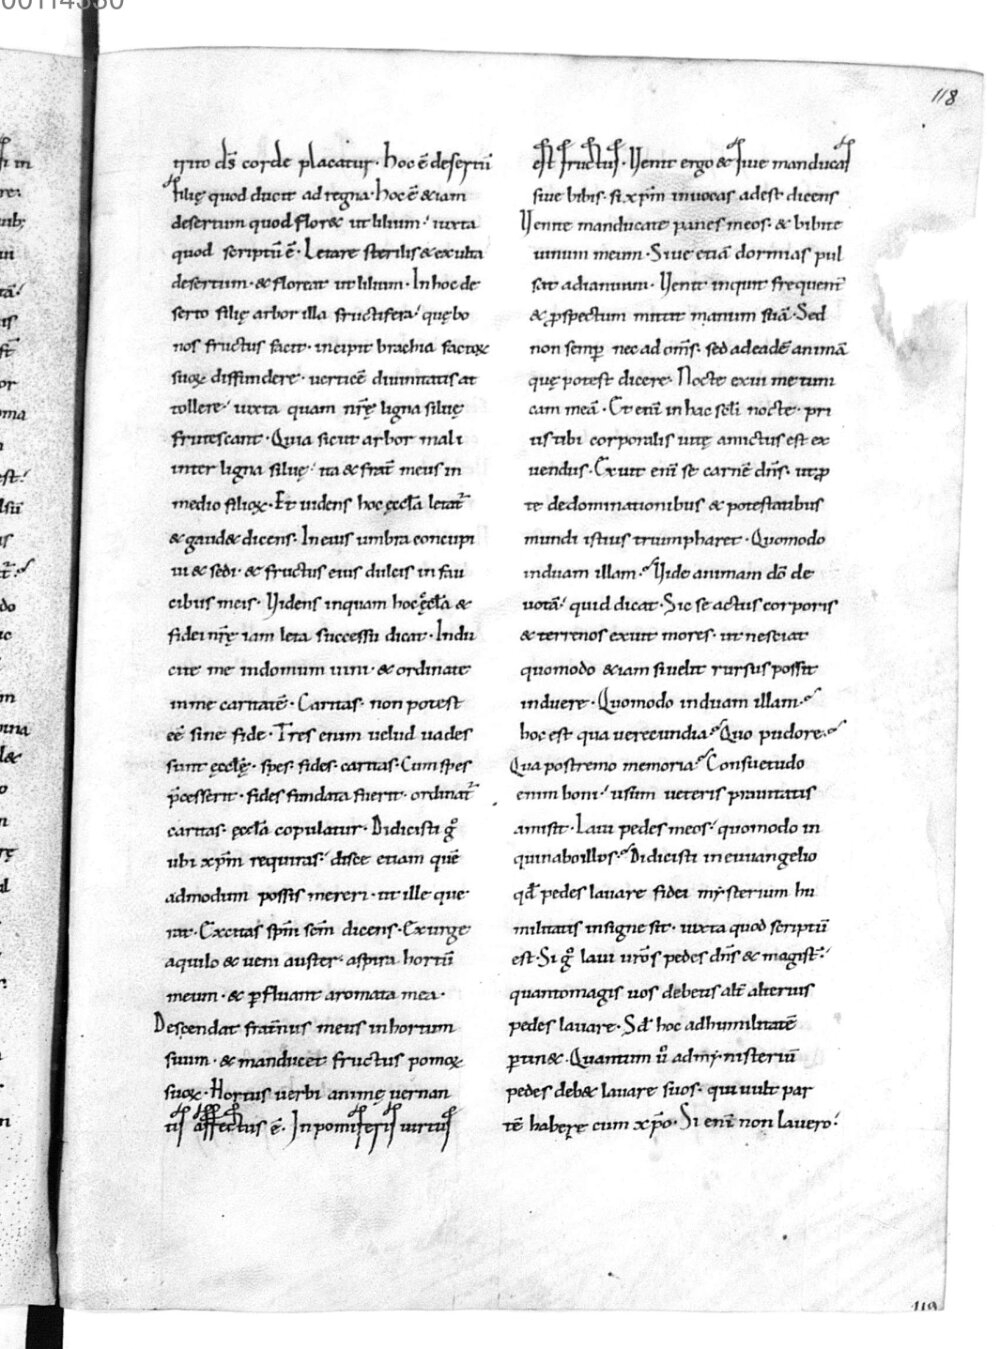 118
trito ds̄ corde placatur. hoc ē desertū
filię quod ducit ad regna. hoc ē &iam
desertum quod flor& ut lilium. iuxta
quod scriptū ē. Letare sterilis & exulta
desertum. & floreat ut lilium. In hoc de
serto filię arbor illa fructifera. quę bo
nos fructus facit. incipit brachia factoꝝ
suoꝝ diffundere. verticē divinitatis at
tollere. iuxta quam nr̄ę ligna silvę
frutescant. Quia sicut arbor mali
inter ligna silvę. ita & frat̄ meus in
medio filioꝝ. Et videns hoc ęccl̄a letat̄
& gaud& dicens. In eius umbra concupi
vi & sedi. & fructus eius dulcis in fau
cibus meis. Videns inquam hoc ęccl̄a &
fidei nr̄ę iam leta successu dicat. Indu
cite me in domum vini. & ordinate
in me caritatē. Caritas. non potest
eē sine fide. Tres enim velud vades
sunt ęccl̄ę. spes. fides. caritas. Cum spes
p̄cesserit. fides fundata fuerit. ordinat̄
caritas. ęccl̄a copulatur. Didicisti gͦ
ubi xp̄m requiras. disce etiam quē
admodum possis mereri. ut ille que
rat. Excitas sp̄m sc̄m dicens. Exurge
aquilo & veni auster. aspira hortū
meum. & ꝑfluant aromata mea.
Descendat frat̄nus meus in hortum
suum. & manducet fructus pomoꝝ
suoꝝ. Hortus verbi animę vernan
tis affectus ē. In pomiferis virtus
est fructus. Venit ergo & sive manducas
sive bibis. si xp̄m invocas adest dicens
Venite manducate panes meos. & bibite
vinum meum. Sive etiā dormias pul
sat ad ianuam. Venit inquit frequent̄
& ꝓspectum mittit manum suā. Sed
non semꝑ nec ad om̄s. sed ad eadē animā
quę potest dicere. Nocte exui me tuni
cam meā. Et eni in hac scl̄i nocte. pri
us tibi corporalis vitę amictus est ex
uendus. Exuit eni se carnē dn̄s. ut ꝓ
te de dominationibus & potestatibus
mundi istius triumpharet. Quomodo
induam illam. Vide animam dō de
votā. quid dicat. Sic se actus corporis
& terrenos exuit mores. ut nesciat
quomodo &iam si velit rursus possit
induere. Quomodo induam illam.
hoc est qua verecundia. Quo pudore.
Qua postremo memoria. Consuetudo
enim boni. usum veteris pravitatis
amisit. Lavi pedes meos. quomodo in
quinabo illos. Didicisti in euuangelio
qd̄ pedes lavare fidei mysterium hu
militatis insigne sit. iuxta quod scriptū
est. Si gͦ lavi vr̄os pedes dn̄s & magist̄.
quanto magis vos debetis alt̄ alterius
pedes lavare. Sd̄ hoc ad humilitatē
ꝑtin&. Quantum ū ad mynisteriū
pedes deb& lavare suos. qui vult par
tē habere cum xp̄o. Si eni non lavero.
119